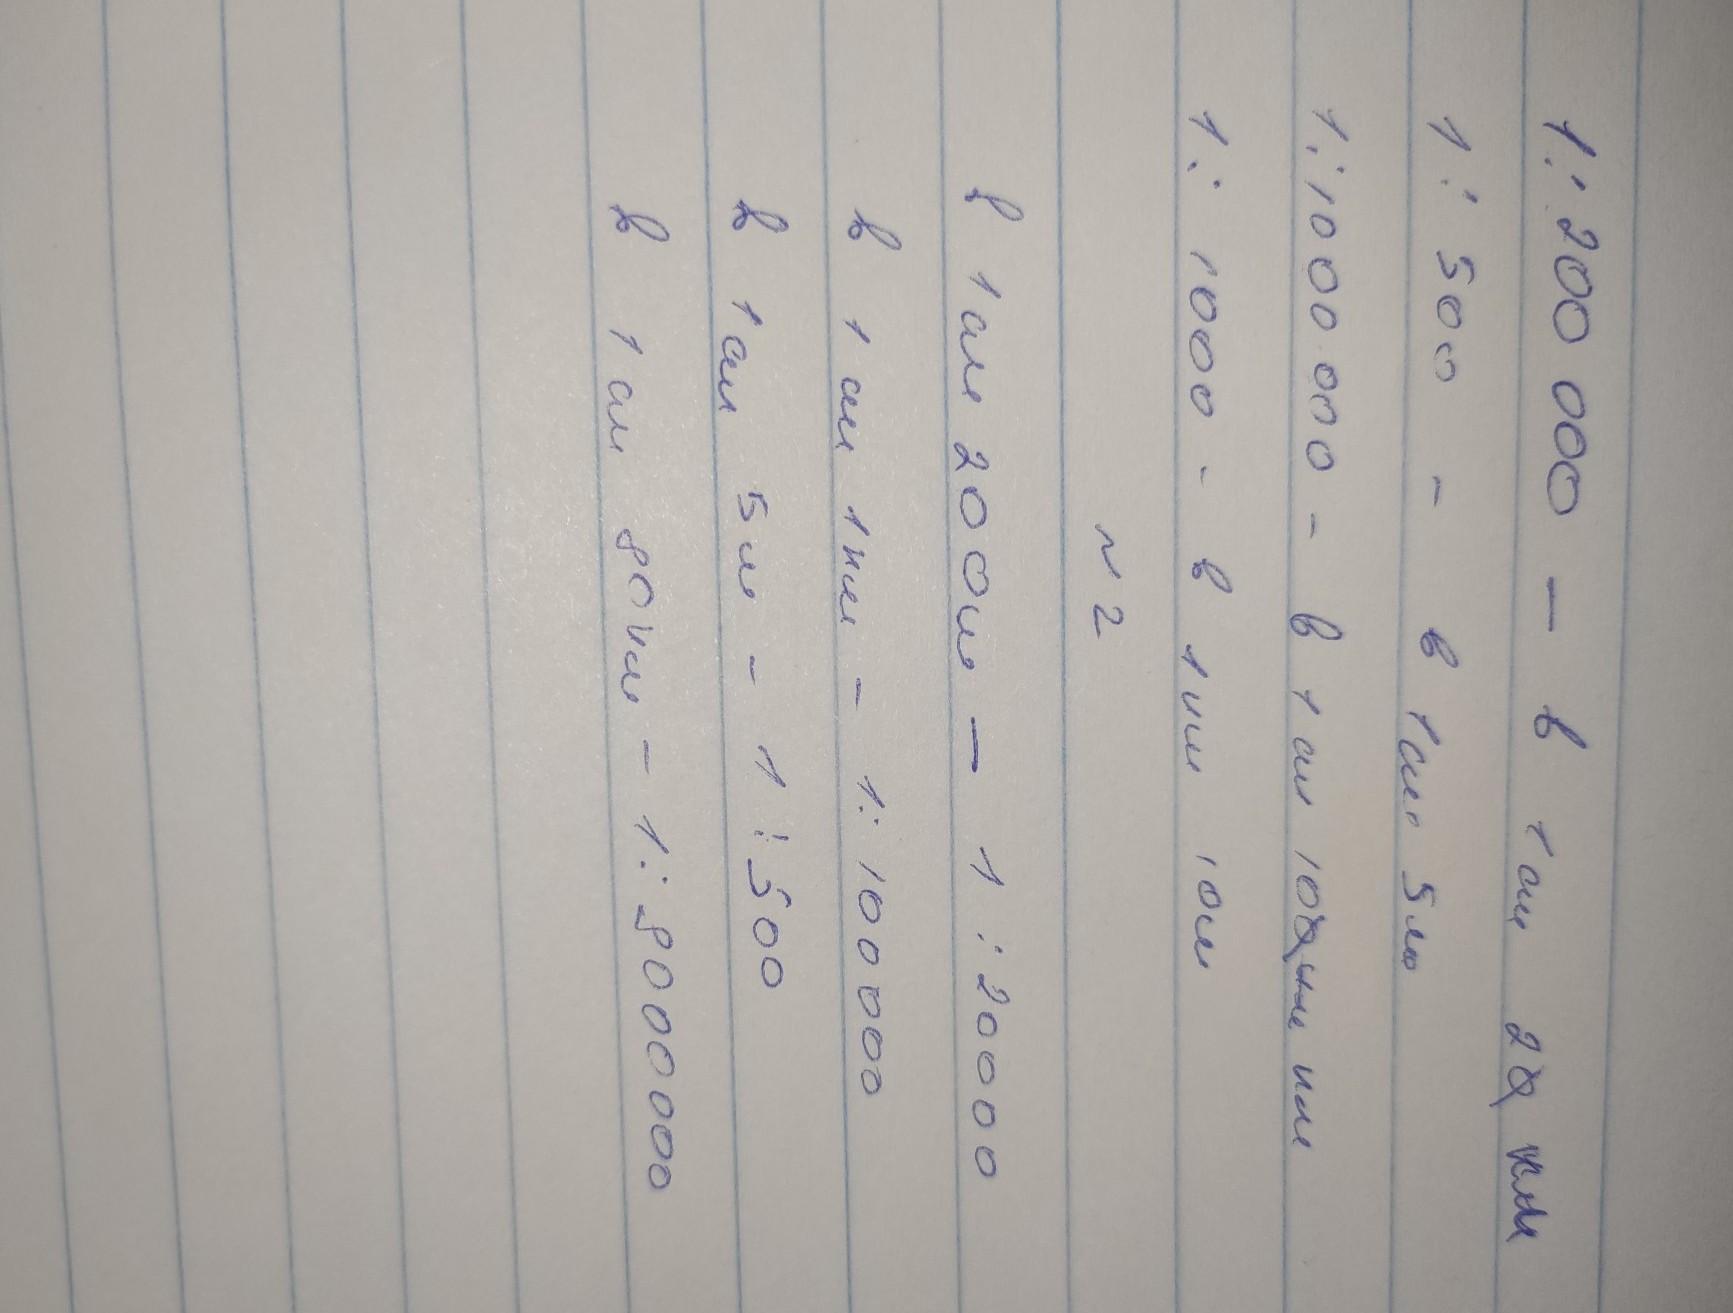 1:200 000 — в 1см 2 км
1:500 - в 1см 5м
1:1000 000 - в 1 см 10 км
1:1000 - в 1см 10м
№2
в 1см 200м — 1:20000
в 1 см 1км - 1:100000
в 1см 5м - 1:500
в 1см 80км - 1:8000000